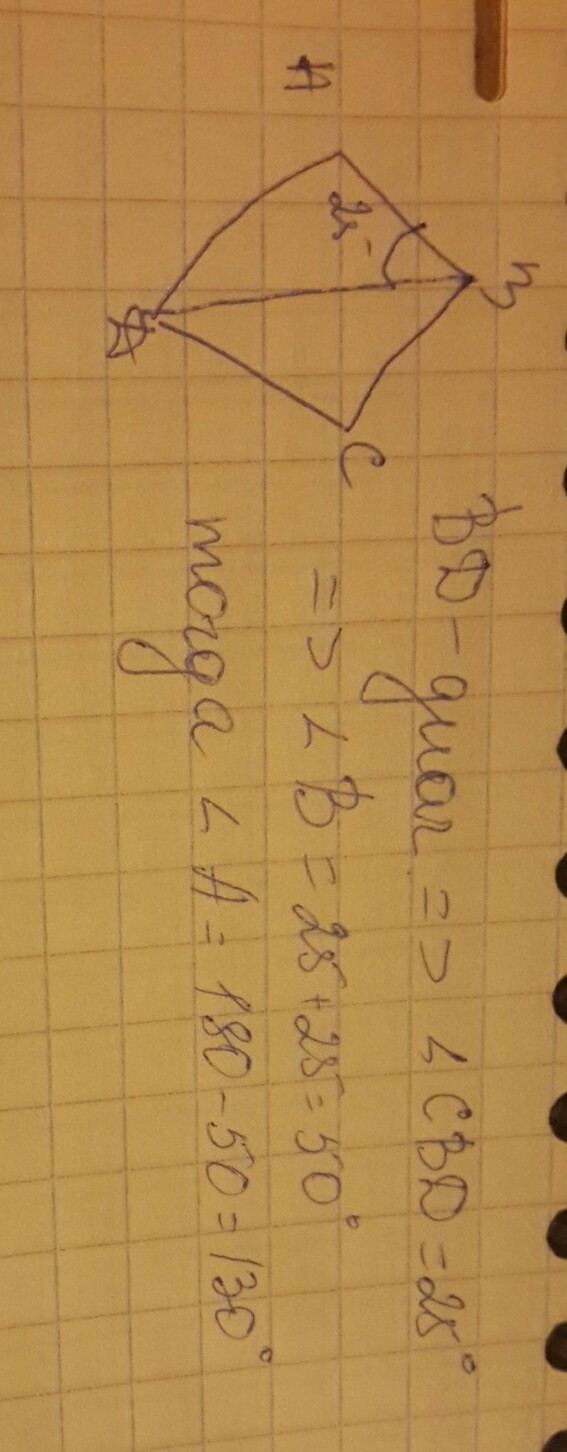 A
B
25°
D
C
BD - диаг => ∠CBD = 25°
=> ∠B = 25 + 25 = 50°
тогда ∠A = 180 - 50 = 130°